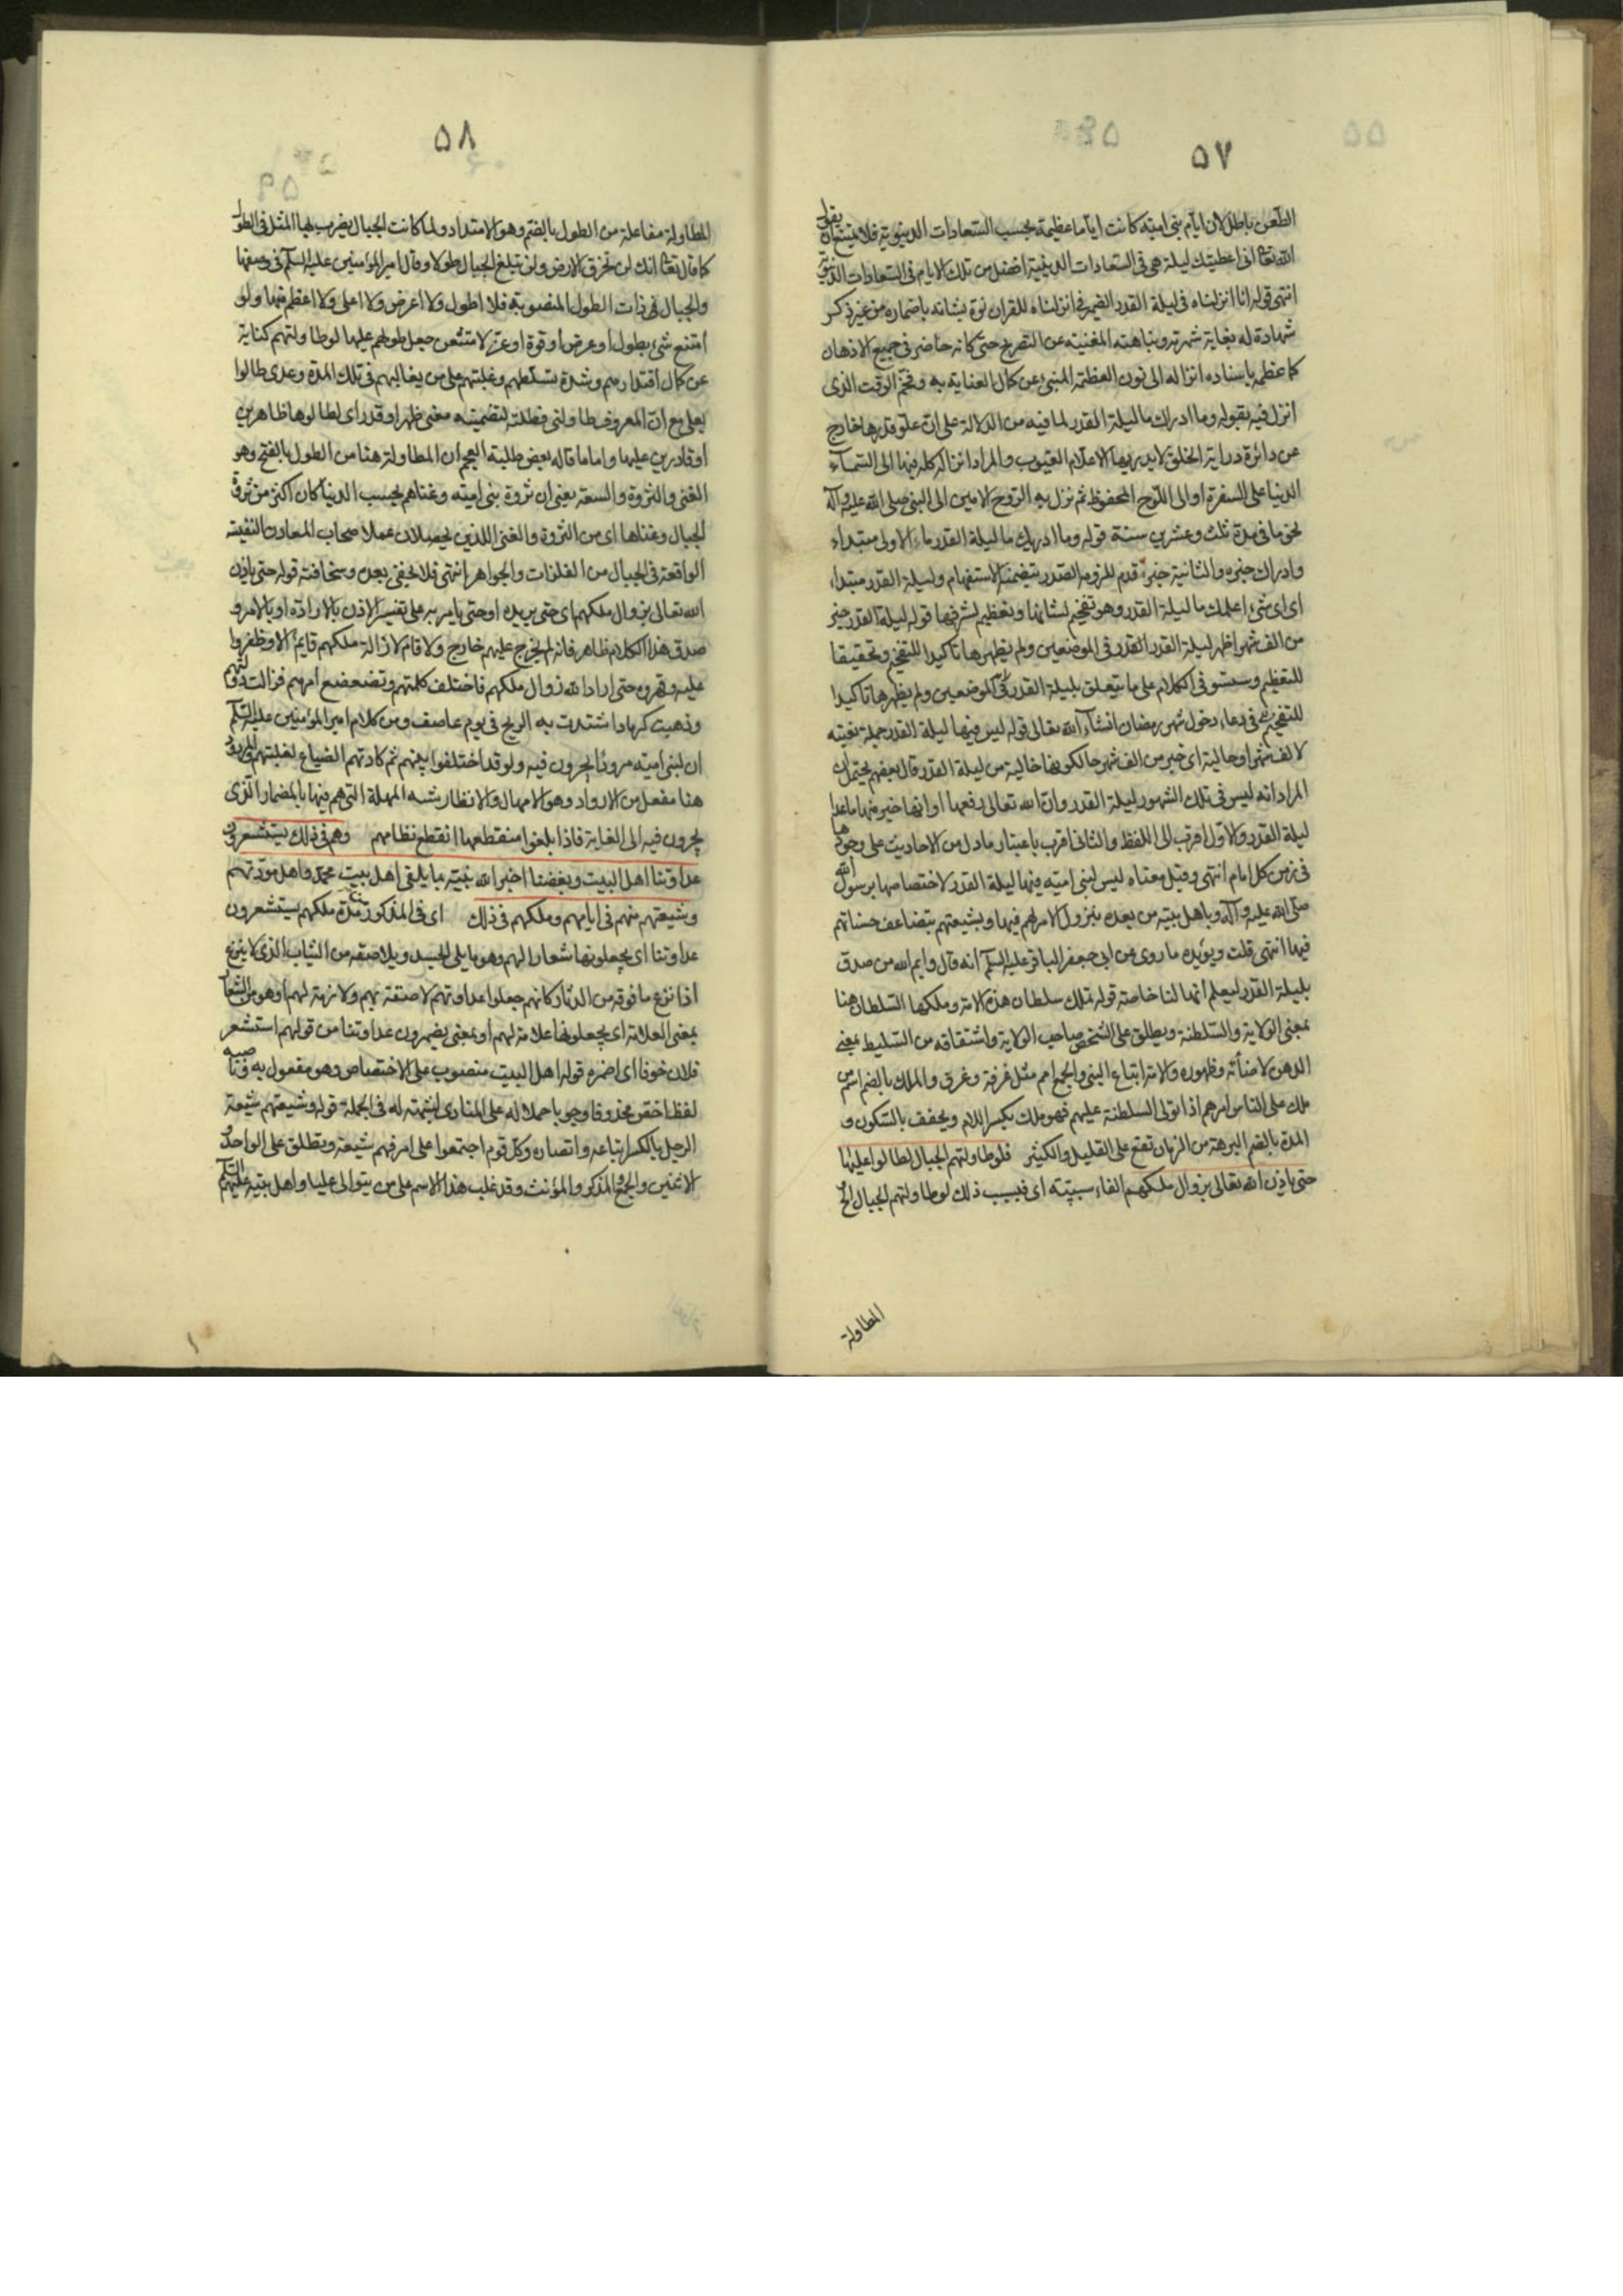 ۵۷
الطعن باطل لان ايام بنى امية كانت اياما عظيمة بحسب السعادات الدنيوية فلا يمتنع ان يقول
الله تعالى انى اعطيتك ليلة هى فى السعادات الدينية افضل من تلك الايام فى السعادات الدنيوية
انتهى قوله انا انزلناه فى ليلة القدر الضمير فى انزلناه للقران نوه بشانه باضماره من غير ذكر
شهادة له بغاية شهرته ونباهته المغنية عن التصريح حتى كانه حاضر فى جميع الاذهان
كما عظمه باسناده انزاله الى نون العظمة المنبئ عن كمال العناية به وفخم الوقت الذى
انزل فيه بقوله وما ادراك ما ليلة القدر لما فيه من الدلالة على ان علو قدرها خارج
عن دائرة دراية الخلق لا يدريها الا علام الغيوب والمراد انزاله كله فيها الى السماء
الدنيا على السفرة او الى اللوح المحفوظ ثم نزل به الروح الامين الى النبى صلى الله عليه وآله
نجوما فى مدة ثلث وعشرين سنة قوله وما ادريك ما ليلة القدر ماء الاولى مبتداء
وادراك خبره والثانية خبر قدم للزومه الصدر بتضمنه الاستفهام وليلة القدر مبتداء
اى اى شئ اعلمك ما ليلة القدر وهو تفخيم لشانها وتعظيم لشرفها قوله ليلة القدر خير
من الف شهر اظهر ليلة القدر القدر فى الموضعين ولم يظهرها تاكيدا للتفخيم وتحقيقا
للتعظيم وسنستوفى الكلام على ما يتعلق بليلة القدر فى الموضعين ولم يظهرها تاكيدا
للتفخيم فى دعاء دخول شهر رمضان انشاء الله تعالى قوله ليس فيها ليلة القدر جملة نعتيه
لالف شهر او حالية اى خير من الف شهر حالكونها خالية من ليلة القدر قال بعضهم يحتمل ان
المراد انه ليس فى تلك الشهور ليلة القدر وان الله تعالى رفعها او انها خير منها ما عدا
ليلة القدر والاول اقرب الى اللفظ والثانى اقرب باعتبار ما دل من الاحاديث على وجودها
فى زمن كل امام انتهى وقيل معناه ليس لبنى امية فيها ليلة القدر لاختصاصها برسول الله
صلى الله عليه وآله وباهل بيته من بعده بنزول الامر لهم فيها وبشيعتهم بتضاعف حسناتهم
فيها انتهى قلت ويؤيده ما روى عن ابى جعفر الباقر عليه السلم انه قال وايم الله من صدق
بليلة القدر ليعلم انها لنا خاصة قوله تملك سلطان هذه الامة وملكها السلطان هنا
بمعنى الولاية والسلطنة ويطلق على الشخص صاحب الولاية واشتقاقه من السليط بمعنى
الدهن لاضائته وظهوره والامة اتباع النبى والجمع امم مثل غرفة وغرف والملك بالضم اسم من
ملك على الناس امرهم اذا تولى السلطنة عليهم فهو ملك بكسر اللام ويخفف بالسكون و
المدة بالضم البرهة من الزمان تقع على القليل والكثير فلو طاولتهم الجبال لطالوا عليها
حتى ياذن الله تعالى بزوال ملكهم الفاء سببية اى فبسبب ذلك لو طاولتهم الجبال الخ
المطاولة
۵۸
المطاولة مفاعلة من الطول بالضم وهو الامتداد ولما كانت الجبال يضرب بها المثل فى الطول
كما قال تعالى انك لن تخرق الارض ولن تبلغ الجبال طولا وقال امير المؤمنين عليه السلم فى وصفها
والجبال ذات الطول المنصوبة فلا اطول ولا اعرض ولا اعلى ولا اعظم منها ولو
امتنع شئ بطول او عرض او قوة او عز لامتنعن جعل طولهم عليها لو طاولتهم كناية
عن كمال اقتدارهم وشدة تسلطهم وغلبتهم على من يغالبهم فى تلك المدة وعدى طالوا
بعلى مع ان المعروف طاولنى فطلته لتضمينه معنى ظهر او قدر اى لطالوها ظاهرين
او قادرين عليها واما ما قاله بعض طلبة العجم ان المطاولة هنا من الطول بالفتح وهو
الغنى والثروة والسعة يعنى ان ثروة بنى امية وغناهم بحسب الدنيا كان اكثر من ثروة
الجبال وغناها اى من الثروة والغنى اللذين يحصلان عملا صحاب المعادن النفيسة
الواقعة فى الجبال من الفلزات والجواهر انتهى فلا يخفى بعده وسخافته قوله حتى ياذن
الله تعالى بزوال ملكهم اى حتى يريده او حتى يامر به على تفسير الاذن بالارادة او بالامر و
صدق هذا الكلام ظاهر فانه لم يخرج عليهم خارج ولا قام لازالة ملكهم قايم الا وظفروا
عليه وقهروه حتى اراد الله زوال ملكهم فاختلف كلمتهم وتضعضع امرهم فزالت دولتهم
وذهبت كرماد اشتدت به الريح فى يوم عاصف ومن كلام امير المؤمنين عليه السلم
ان لبنى امية مرودا يجرون فيه ولو قد اختلفوا بينهم ثم كادتهم الضباع لغلبتهم والمرود
هنا مفعل من الارواد وهو الامهال والانظار يشبه المهلة التى هم فيها بالمضمار الذى
يجرون فيه الى الغاية فاذا بلغوا منقطعها انقطع نظامهم وهم فى ذلك يستشعرون
عداوتنا اهل البيت وبغضنا اخبر الله نبيه بما يلقى اهل بيت محمد واهل مودتهم
وشيعتهم منهم فى ايامهم وملكهم فى ذلك اى فى المذكور من مدة ملكهم يستشعرون
عداوتنا اى يجعلونها شعارا لهم وهو ما يلى الجسد ويلاصقه من الثياب الذى لا ينزع
اذا نزع ما فوقه من الدثار كانهم جعلوا عداوتهم لاصقة بهم ولازمة لهم او هو من الشعار
بمعنى العلامة اى يجعلونها علامة لهم او بمعنى يضمرون عداوتنا من قولهم استشعر
فلان خوفا اى اضمره قوله اهل البيت منصوب على الاختصاص وهو مفعول به وناصبه
لفظ اخص محذوفا وجوبا حملا له على المنادى لشبهه له فى الجملة قوله وشيعتهم شيعة
الرجل بالكسر اتباعه وانصاره وكل قوم اجتمعوا على امر فهم شيعة وتطلق على الواحد و
الاثنين والجمع والمذكر والمؤنث وقد غلب هذا الاسم على من يتوالى عليا واهل بيته عليهم السلم